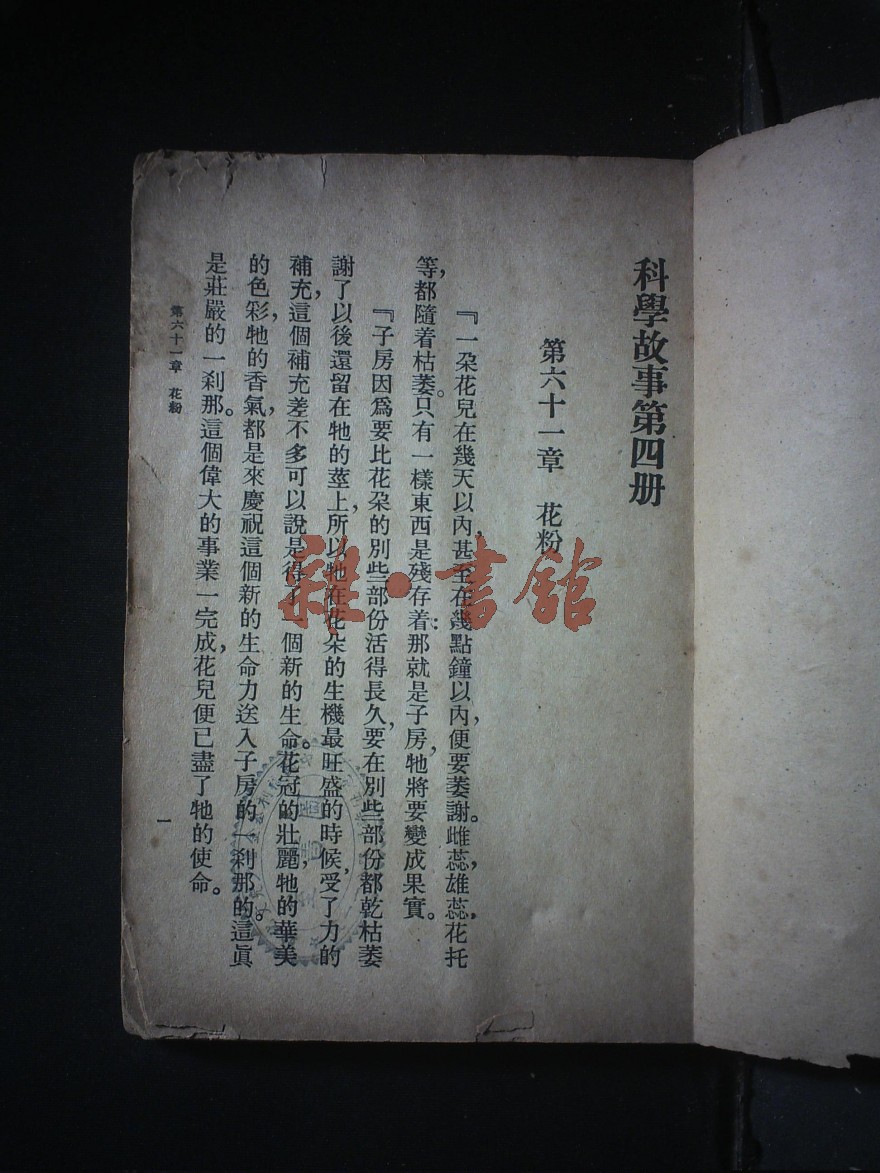 科學故事第四册
第六十一章 花粉
『一朶花兒在幾天以內,甚至在幾點鐘以內,便要萎謝。雌蕊,雄蕊,花托
等,都隨着枯萎。只有一樣東西是殘存着:那就是子房,牠將要變成果實。
『子房因爲要比花朶的別些部份活得長久,要在別些部份都乾枯萎
謝了以後還留在牠的莖上,所以牠在花朵的生機最旺盛的時候,受了力的
補充,這個補充差不多可以說是得了一個新的生命。花冠的壯麗,牠的華美
的色彩,牠的香氣,都是來慶祝這個新的生命力送入子房的一剎那的。這眞
是莊嚴的一剎那。這個偉大的事業一完成,花兒便已盡了牠的使命。
第六十一章 花粉
一
雜·書館